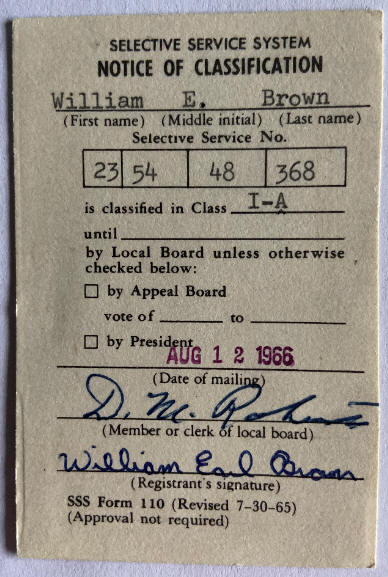 SELECTIVE SERVICE SYSTEM
NOTICE OF CLASSIFICATION
William E. Brown
(First name) (Middle initial) (Last name)
Selective Service No.
23 54 48 368
is classified in Class I-A
until
by Local Board unless otherwise
checked below:
☐ by Appeal Board
vote of ______ to ______
☐ by President
AUG 12 1966
(Date of mailing)
D. M. Roberts
(Member or clerk of local board)
William Earl Brown
(Registrant's signature)
SSS Form 110 (Revised 7-30-65)
(Approval not required)